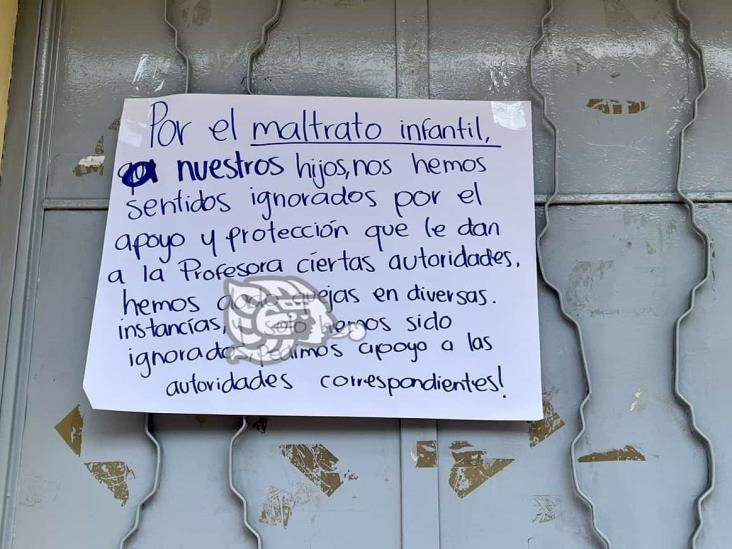 Por el maltrato infantil,
a nuestros hijos, nos hemos
sentidos ignorados por el
apoyo y protección que le dan
a la Profesora ciertas autoridades.
hemos dado quejas en diversas.
instancías, y solo hemos sido
ignorados, pedimos apoyo a las
autoridades correspondientes!